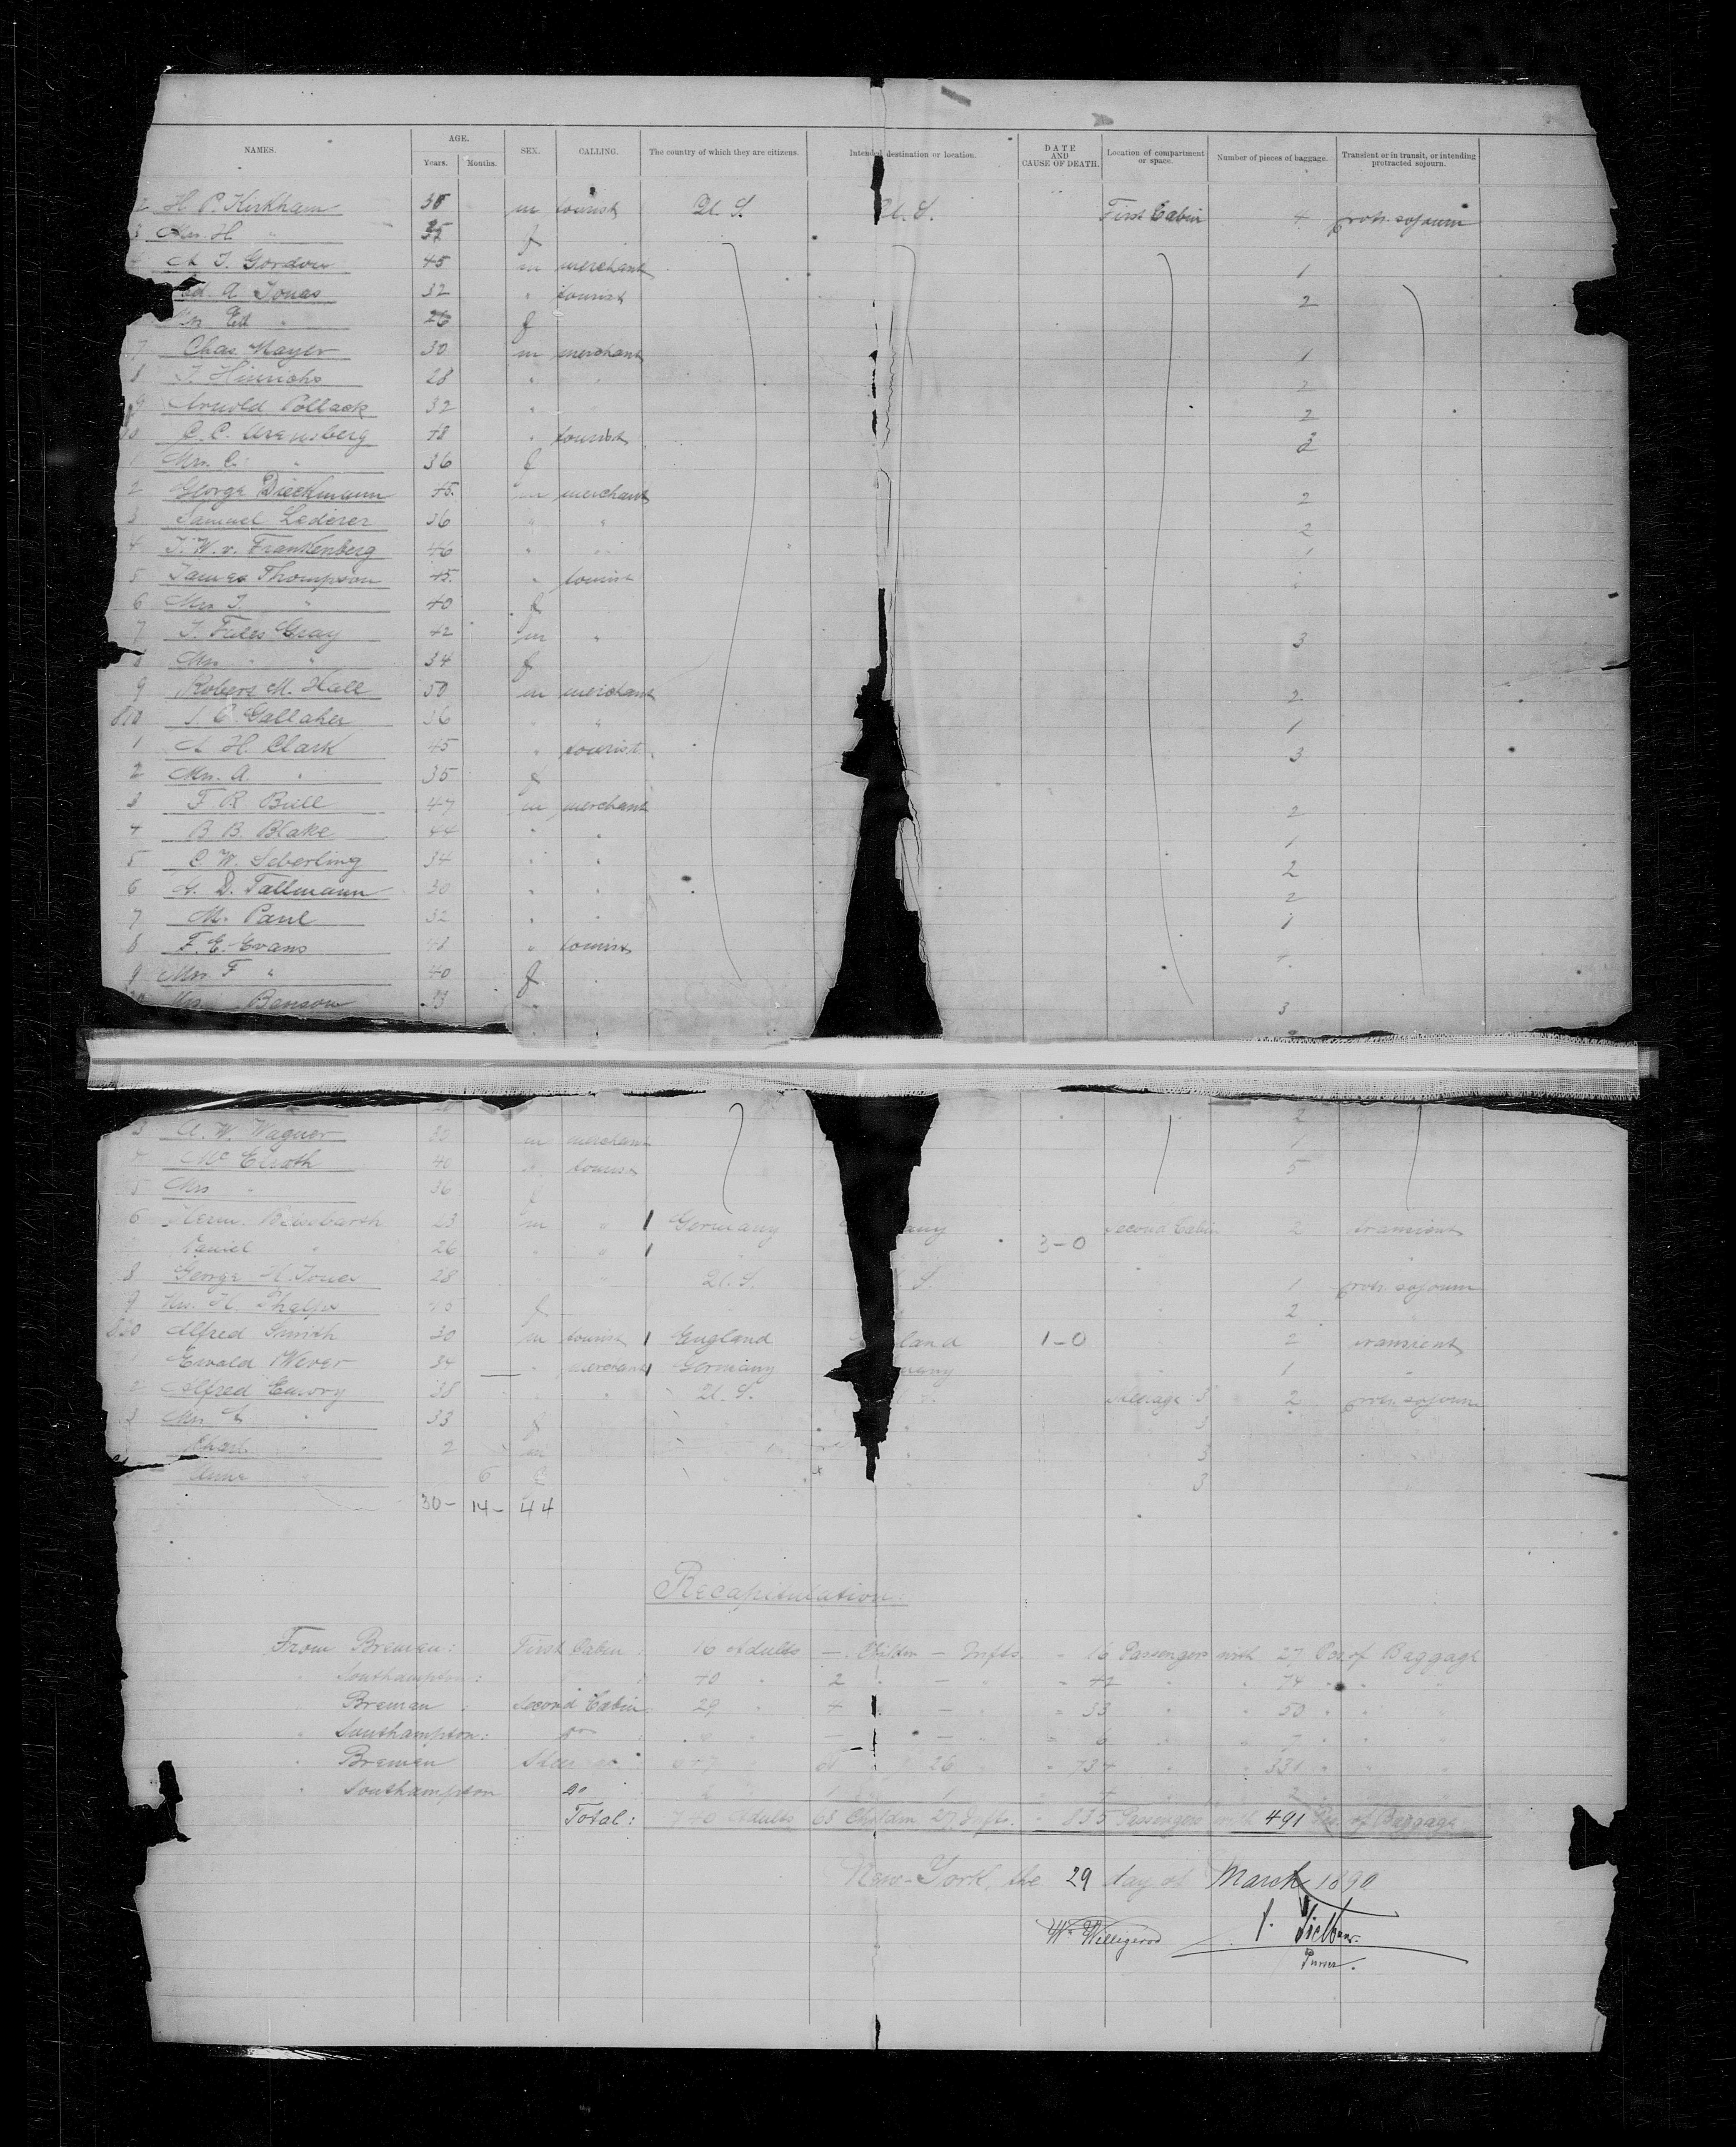 NAMES. AGE. Years. Months. SEX. CALLING. The country of which they are citizens. Intended destination or location. DATE AND CAUSE OF DEATH. Location of compartment or space. Number of pieces of baggage. Transient or in transit, or intending protracted sojourn.
2 H. P. Kirkham 38 m tourist U. S. U. S. First Cabin 4 protr. sojourn
3 Mrs. H " f
A. J. Gordon 45 m merchant 1
Ed. A. Jonas 32 " tourist 2
Mrs Ed " 26 f
7 Chas. Mayer 30 m merchant 1
8 J. Hinrichs 28 " " 2
9 Arnold Pollack 32 " 2
10 C. C. Arensberg 48 " tourist 2
1 Mrs. C. " 36 f
2 George Dieckmann 45. m merchant 2
3 Samuel Lederer 36 " " 2
4 J. W. v. Frankenberg 46 " " 1
5 James Thompson 45. " tourist
6 Mrs J. " 40 f
7 J. Fales Gray 42 m " 3
8 Mrs " " 34 f
9 Robert M. Hall 50 m merchant 2
810 J. C. Gallaher 36 " " 1
1 A. H. Clark 45 " tourist 3
2 Mrs. A. " 35 f
3 F. R. Bull 47 m merchant 2
4 B. B. Blake 44 " " 1
5 C. W. Seberling 34 " " 2
6 G. D. Tallmann 30 " " 2
7 M. Paul 32 " " 1
8 F. E. Evans 48 " tourist
9 Mrs. F " 40 f
Mrs. Benson 33 " 3
2
3 A. W. Wagner 30 m merchant 1
Mc Elrath 40 " tourist 5
5 Mrs " 36 f
6 Herm. 23 m " Germany any Second Cabin 2 transient
Daniel " 26 " " " 3-0
8 George H. Jones 28 " U. S. S. 1 protr. sojourn
9 Mrs. H. Phelps f 2
820 Alfred Smith 30 m tourist England land 1-0 2 transient
1 Ewald Wever 34 " merchant Germany many 1 "
2 Alfred Emory 38 " " U. S. Steerage 3 2 protr. sojourn
3 Mrs. " 33 f 3
" 2 m 3
Anna 6 f 3
30- 14- 44
Recapitulation:
From Bremen: First Cabin: 16 Adults — Children — Infts. = 16 Passengers with 27 Pcs. of Baggage
" Southampton: " 40 " 2 " — " = 42 " " 74 " " "
" Bremen: Second Cabin: 29 " 4 " — " = 33 " " 50 " " "
" Southampton: do — — = 6
" Bremen Steerage 647 26 " 734 " " 331 "
" Southampton do 1 1 4 2
Total: 740 Adults 68 Children 27 Infts. 835 Passengers with 491 Pcs. of Baggage
New-York, the 29 day of March 1890
W. Willigerod
Purser.